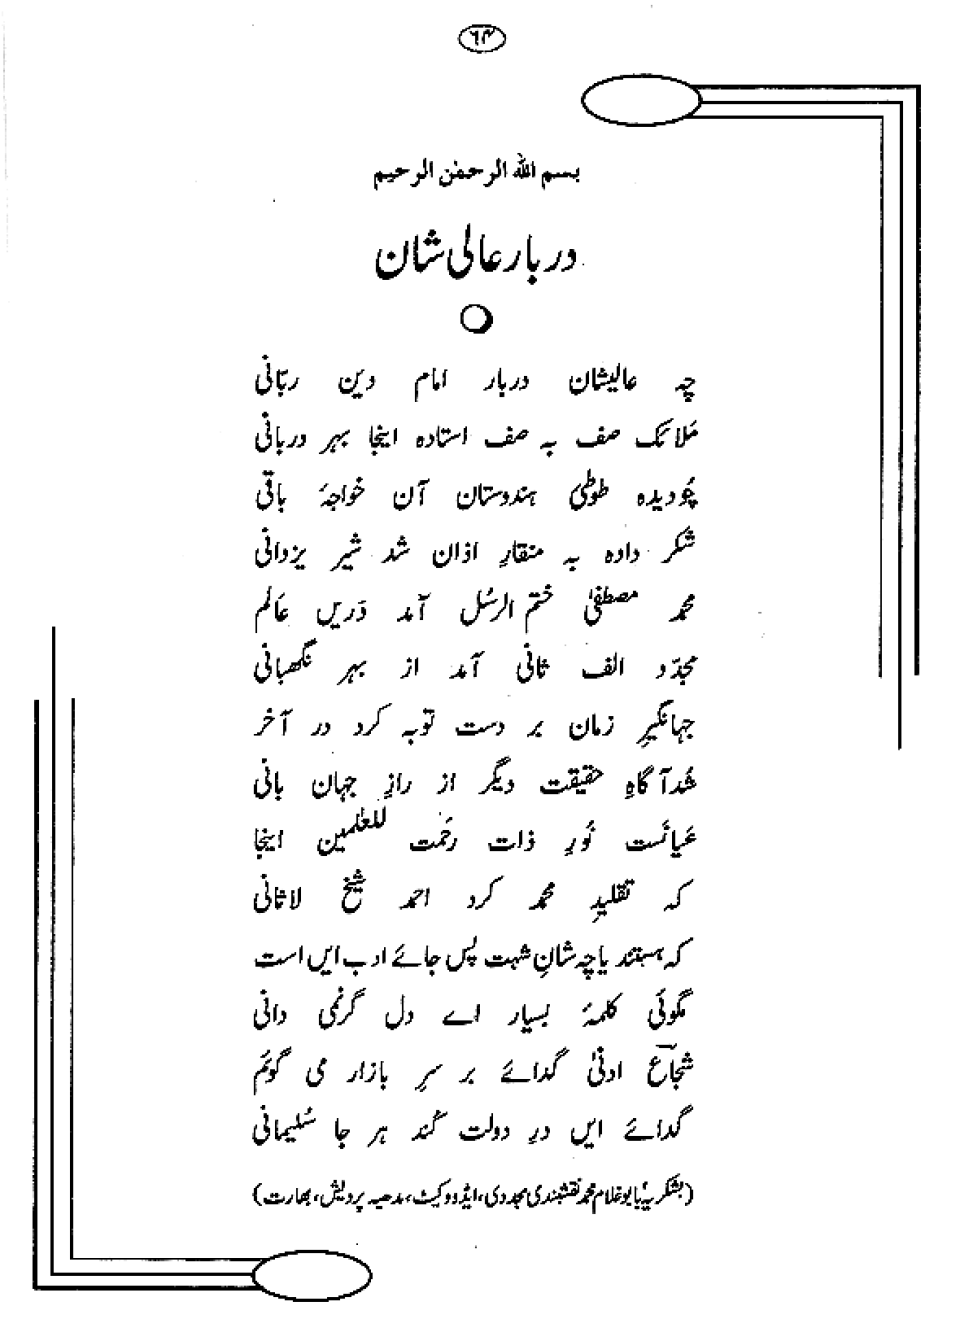 ۶۴
بسم اللہ الرحمٰن الرحیم
دربار عالی شان
چہ عالیشان دربار امام دین ربّانی
مَلائک صف بہ صف استادہ اینجا بہر دربانی
چُو دیدہ طوطیٔ ہندوستان آن خواجۂ باقی
شکر دادہ بہ منقارِ اذان شد شیر یزدانی
محمد مصطفیٰ ختم الرسُل آمد دَریں عَالم
مجدّد الف ثانی آمد از بہر نگھبانی
جہانگیرِ زمان بر دست توبہ کرد در آخر
شُد آگاہِ حقیقت دیگر از رازِ جہان بانی
عَیانَست نُورِ ذات رحَمت للعٰلمین اینجا
کہ تقلیدِ محمد کرد احمد شیخ لاثانی
کہ ہستند یا چہ شانِ شہت پس جائے ادب ایں است
مگوئی کلمۂ بسیار اے دل گرنمی دانی
شجاؔع ادنیٰ گدائے بر سرِ بازار می گویَم
گدائے ایں درِ دولت کُند ہر جا سُلیمانی
(بشکریہ بابو غلام محمد نقشبندی مجددی، ایڈووکیٹ، مدھیہ پردیش، بھارت)